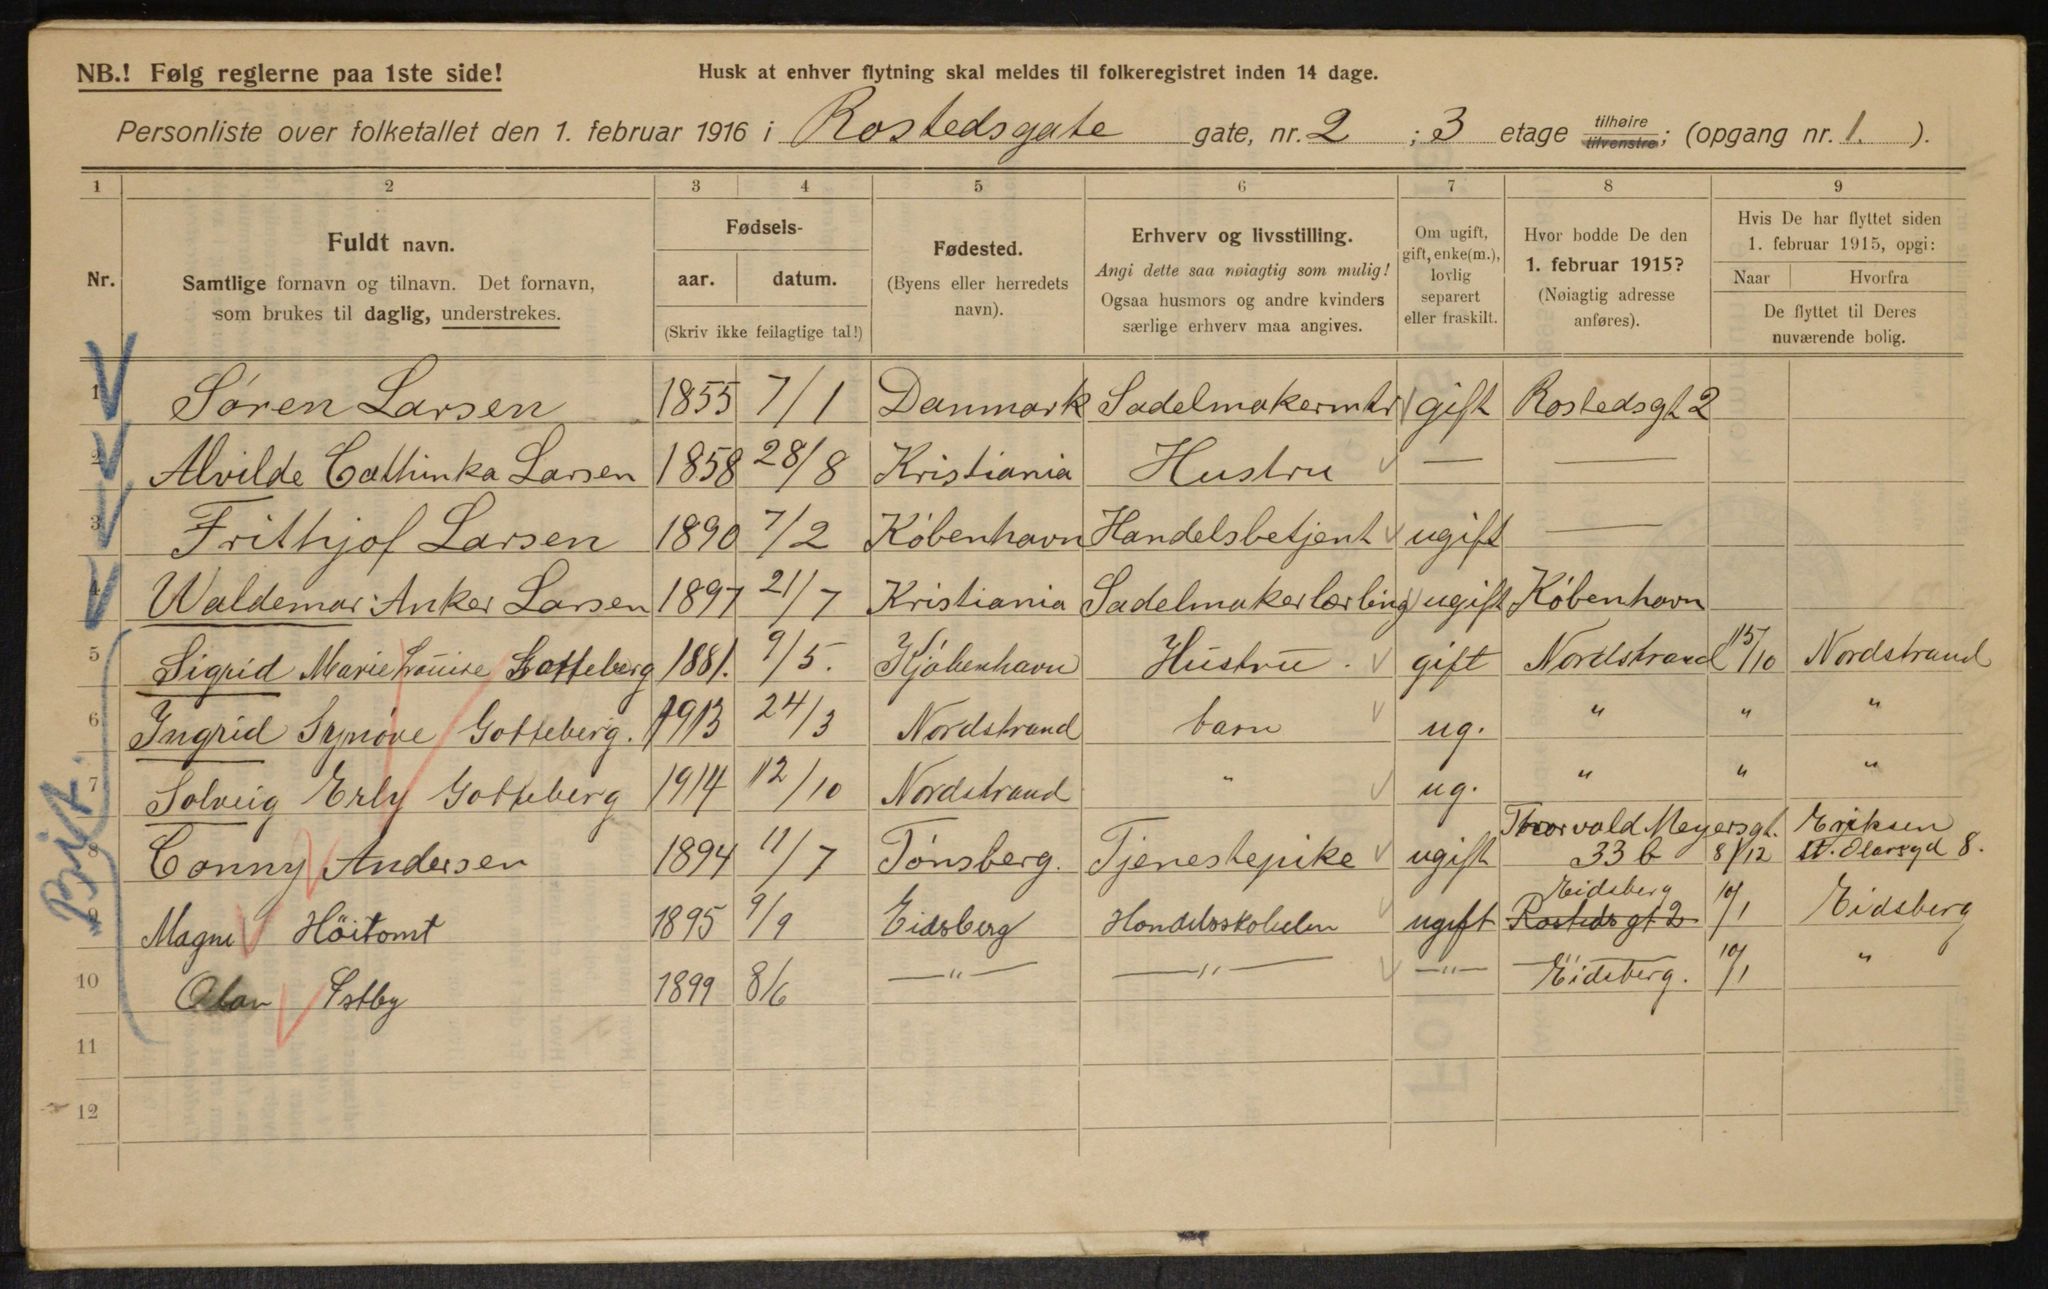 NB.! Følg reglerne paa 1ste side!
Husk at enhver flytning skal meldes til folkeregistret inden 14 dage.
Personliste over folketallet den 1. februar 1916 i Rostedsgate gate, nr. 2 ; 3 etage tilhøire tilvenstre; (opgang nr. 1. ).
1 2 3 4 5 6 7 8 9
Nr.
Fuldt navn.
Samtlige fornavn og tilnavn. Det fornavn,
som brukes til daglig, understrekes.
Fødsels-
aar. datum.
(Skriv ikke feilagtige tal!)
Fødested.
(Byens eller herredets
navn).
Erhverv og livsstilling.
Angi dette saa nøiagtig som mulig!
Ogsaa husmors og andre kvinders
særlige erhverv maa angives.
Om ugift,
gift, enke(m.),
lovlig
separert
eller fraskilt.
Hvor bodde De den
1. februar 1915?
(Nøiagtig adresse
anføres).
Hvis De har flyttet siden
1. februar 1915, opgi:
Naar Hvorfra
De flyttet til Deres
nuværende bolig.
1 Søren Larsen 1855 7/1 Danmark Sadelmakermtr gift Rostedsgt 2
2 Alvilde Cathinka Larsen 1858 28/8 Kristiania Hustru — —
3 Frithjof Larsen 1890 7/2 København Handelsbetjent ugift —
4 Waldemar Anker Larsen 1897 21/7 Kristiania Sadelmakerlærling ugift København
5 Sigrid Marie Louise Gotteberg 1881. 9/5. Kjøbenhavn Hustru. gift Nordstrand 15/10 Nordstrand
6 Ingrid Synøve Gotteberg. 1913 24/3 Nordstrand barn ug. " " "
7 Solveig Erly Gotteberg 1914 12/10 Nordstrand " ug. " " "
8 Conny Andersen 1894 11/7 Tønsberg. Tjenestepike ugift Thorvald Meyersgt. 33 b 8/12 Eriksen St. Olavsgd 8.
9 Magne Höitomt 1895 9/9 Eidsberg Handelsskolelev ugift Rosteds gt 2 Eidsberg 10/1 Eidsberg
10 Olav Østby 1899 8/6 —"— —"— —"— Eidsberg. 10/1 "
11
12